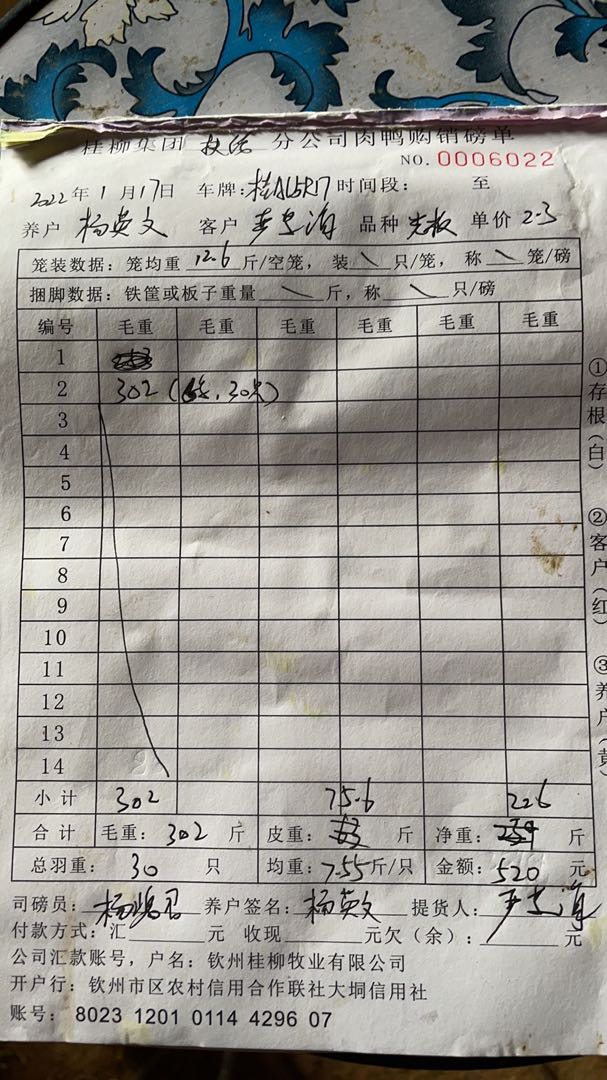 桂柳集团 分公司肉鸭购销磅单
NO. 0006022
2022年1月17日 车牌: 时间段: 至
养户 杨英文 客户 海 品种 光板 单价 2.3
笼装数据: 笼均重 12.6 斤/空笼, 装 \ 只/笼, 称 \ 笼/磅
捆脚数据: 铁筐或板子重量 \ 斤, 称 \ 只/磅
编号 毛重 毛重 毛重 毛重 毛重 毛重
1
2 302 (6笼, 30只)
3
4
5
6
7
8
9
10
11
12
13
14
小计 302 75.6 226
合计 毛重: 302 斤 皮重: 斤 净重: 斤
总羽重: 30 只 均重: 7.55 斤/只 金额: 520 元
司磅员: 养户签名: 杨英文 提货人:
付款方式: 汇 元 收现 元欠(余): 元
公司汇款账号, 户名: 钦州桂柳牧业有限公司
开户行: 钦州市区农村信用合作联社大垌信用社
账号: 8023 1201 0114 4296 07
①存根(白)
②客户(红)
③养户(黄